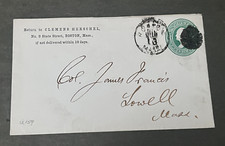 Return to CLEMENS HERSCHEL,
No. 9 State Street, BOSTON, Mass.,
if not delivered within 10 days.
Col. James Francis
Lowell
Mass.